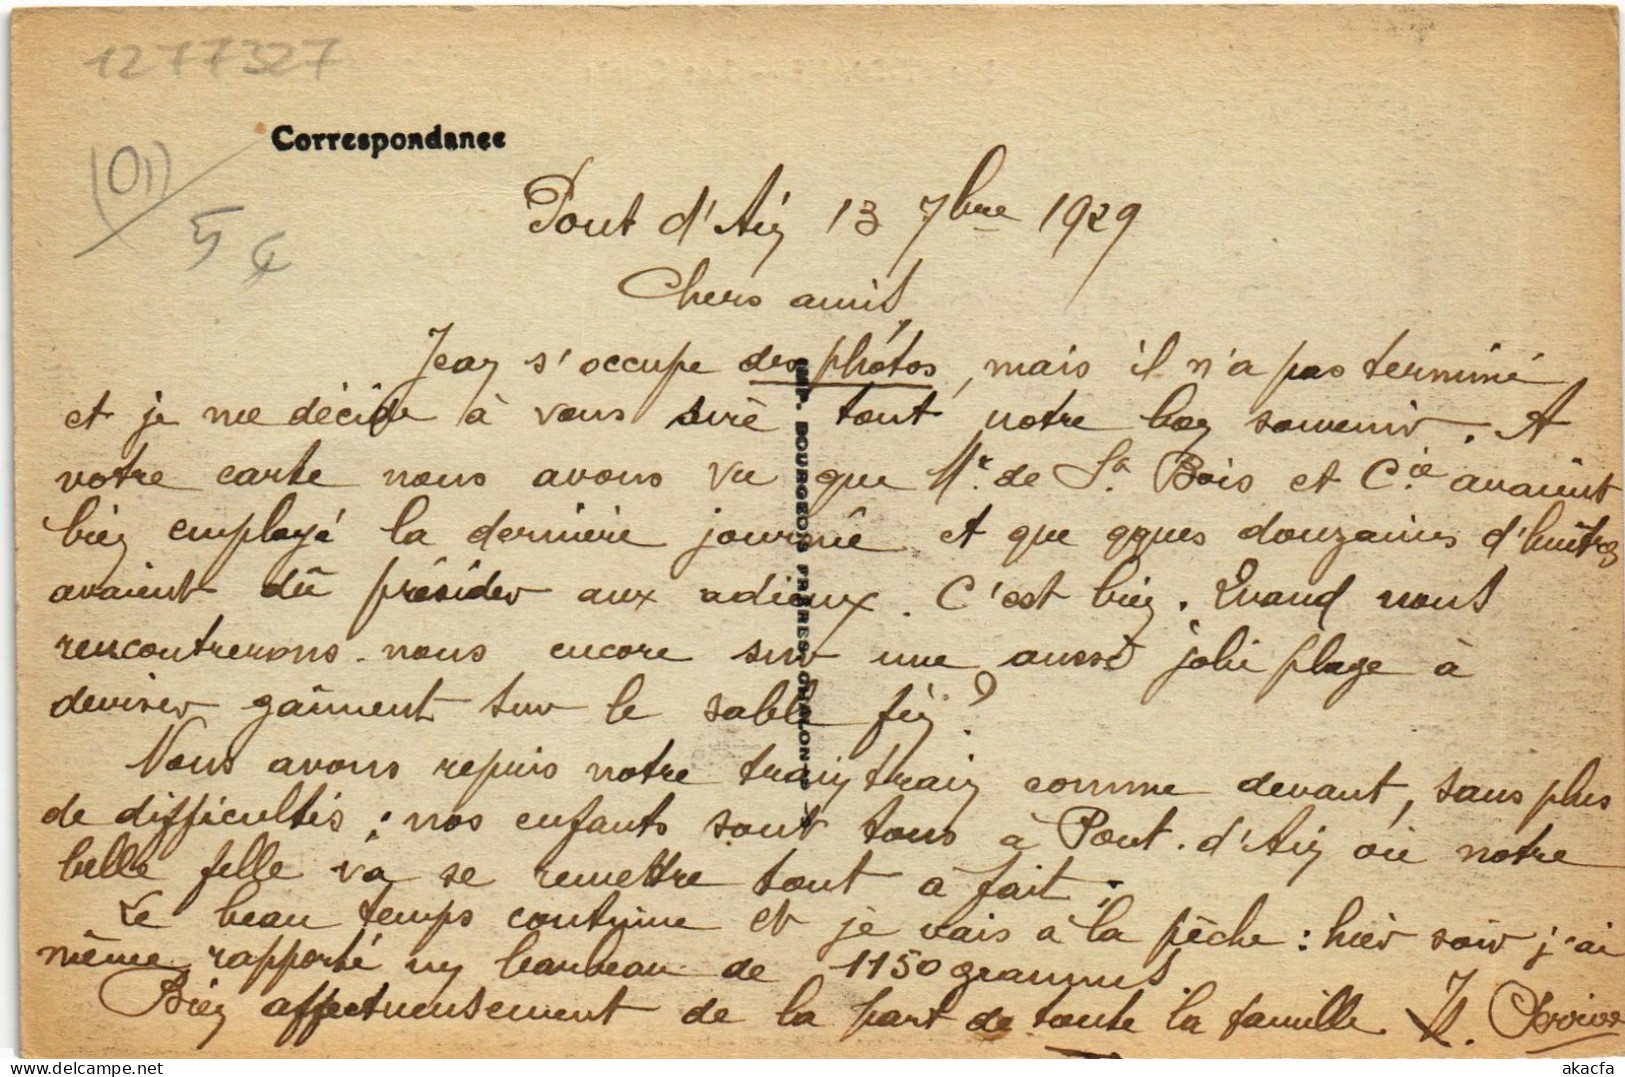 1277327
(01)
5 €
Correspondance
Pont d'Ain 13 7bre 1929
Chers amis,
Jean s'occupe des photos, mais il n'a pas terminé
et je me décide à vous dire tout notre bon souvenir. A
votre carte nous avons vu que Mr. de Sa. Bois et Cie avaient
bien employé la dernière journée et que qques douzaines d'huîtres
avaient dû présider aux adieux. C'est bien. Quand nous
rencontrerons-nous encore sur une aussi jolie plage à
deviser gaîment sur le sable fin?
Nous avons repris notre train train comme devant, sans plus
de difficultés; nos enfants sont tous à Pont-d'Ain où notre
belle fille va se remettre tout à fait.
Le beau temps continue et je vais à la pêche: hier soir j'ai
même rapporté un barbeau de 1150 grammes.
Bien affectueusement de la part de toute la famille.
IMP. BOURGEOIS FRÈRES, CHALON-S-S
akacfa